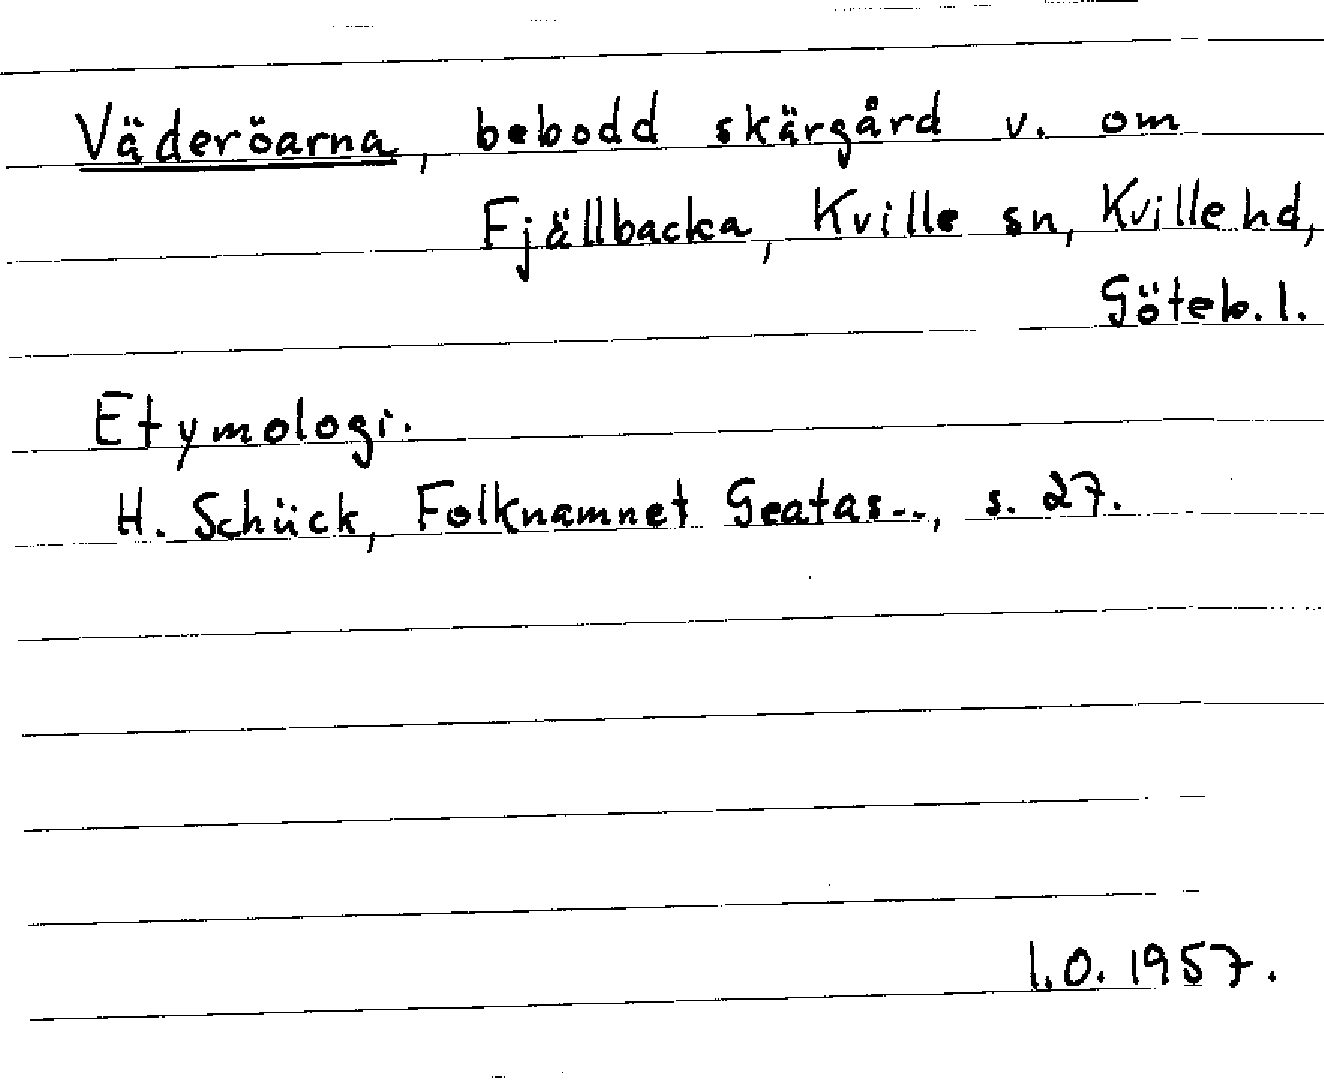 Väderöarna, bebodd skärgård v. om
Fjällbacka, Kville sn, Kville hd,
Göteb. l.
Etymologi.
H. Schück, Folknamnet Geatas.., s. 27.
I.O. 1957.